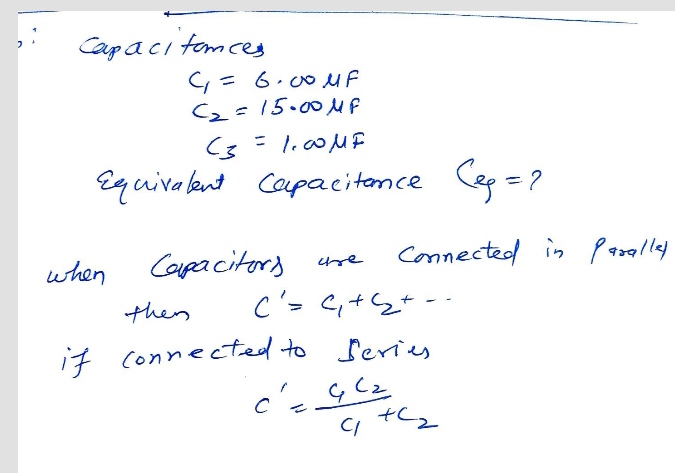 : Capacitances
C₁ = 6.00 μF
C₂ = 15.00 μF
C₃ = 1.00 μF
Equivalent Capacitance Ceq = ?
when Capacitors are Connected in Parallel
then C' = C₁ + C₂ + ---
if connected to Series
C' = C₁ C₂
C₁ + C₂